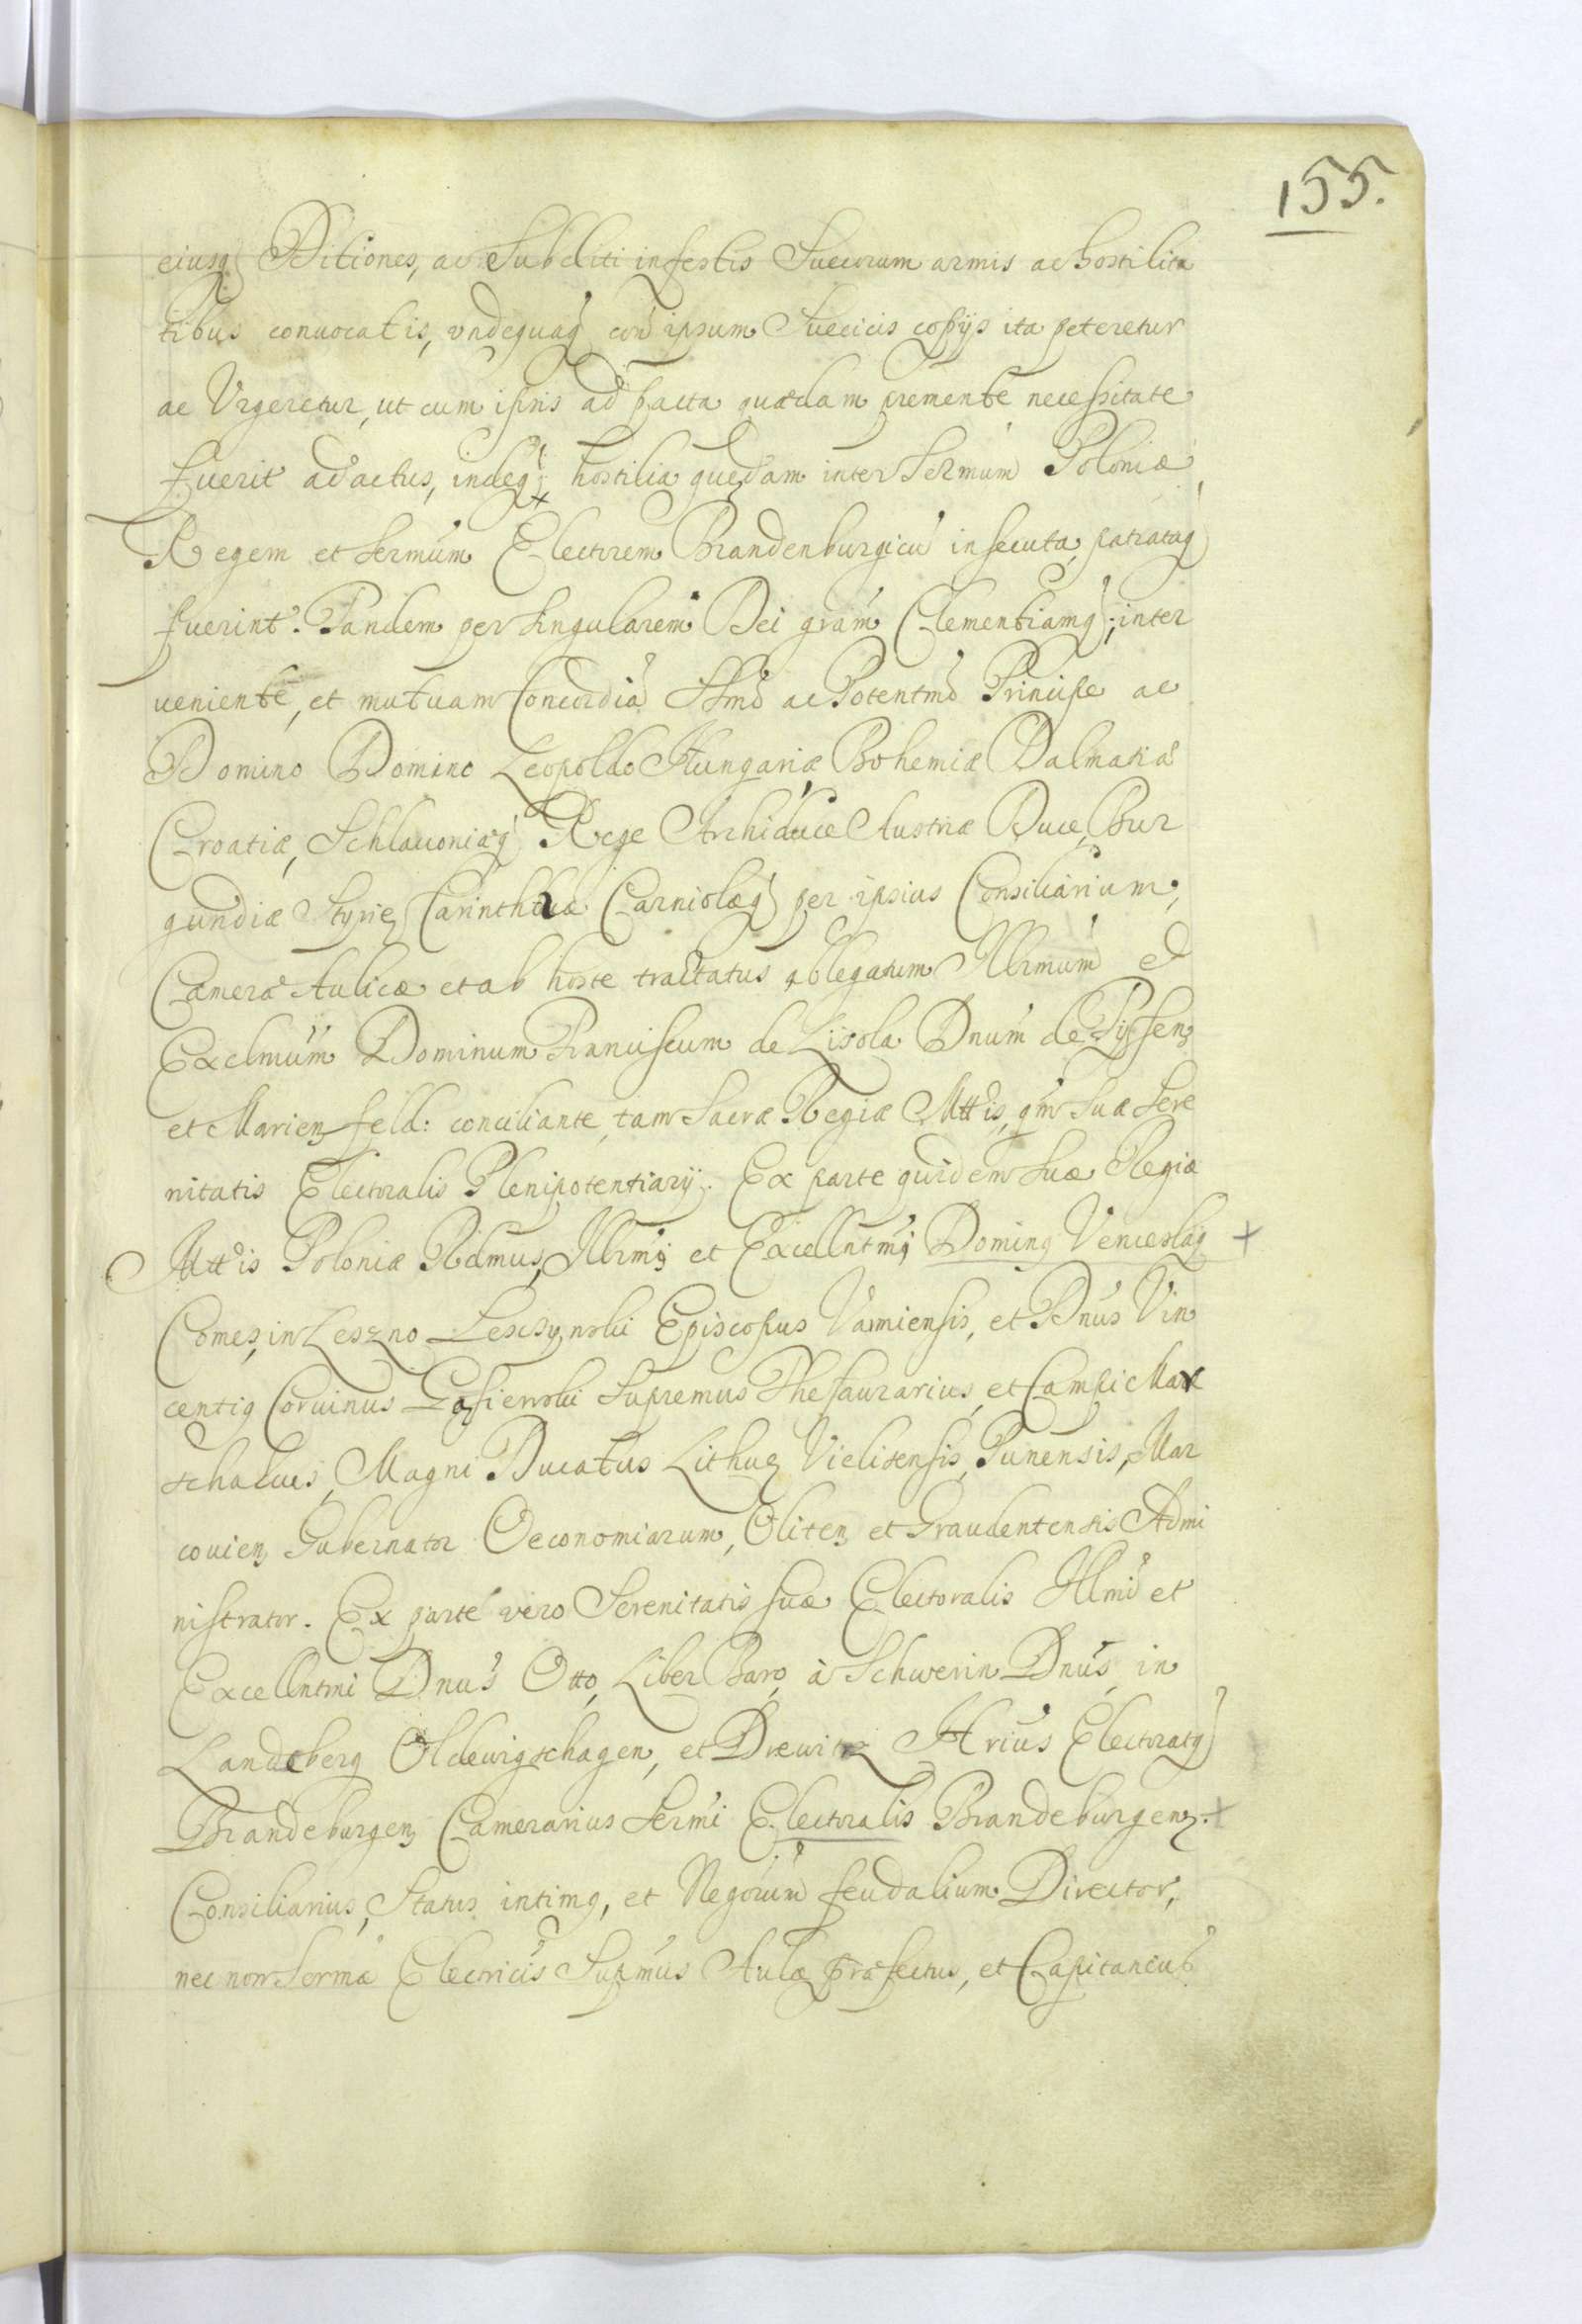 155.
eiusq Ditiones, ac Subditi infestis Suecorum armis ac hostilita
tibus conuocatis, vndequaq con ipsum Suecicis copijs ita peteretur
ac Vrgeretur, ut cum ipsis ad pacta quædam premente necessitate
fuerit adactus, indeq hostilia quędam inter Sermum Poloniæ
Regem et Sermum Electorem Brandenburgicu insecuta, patrataq
fuerint. Tandem per singularem Dei gram Clementiamq; inter
veniente, et mutuam Concordia Ssmo ac Potentmo Principe ac
Domino Domino Leopoldo Hungariæ Bohemiæ Dalmatiæ
Croatiæ, Schlauoniæq Rege Archiduce Austriæ Duce, Bur
gundiæ Styrię Carinthiæ Carniolæq per ipsius Consiliarium,
Cameræ Aulicæ et ab hoste tractatus ablegatum Illrmum et
Exclmum Dominum Franciscum de Lisola Dnum de
et Marienfeld: conciliante, tam Sacræ Regiæ Mttis, qm suæ Sere
nitatis Electoralis Plenipotentiarij. Ex parte quidem suæ Regiæ
Mttis Poloniæ Rdmus, Illrmq et Excellntmq Dominq Venceslaq +
Comes, in Leszno Lesczynski Episcopus Varmiensis, et Dnus Vin
centiq Coruinus Gosiewski Supremus Thesaurarius, et Campi Mar
schalcus, Magni Ducatus Lithuę Vielisensis, Punensis, Mar
couien Gubernator Oeconomiarum, Oliten et Graudentensis Admi
nistrator. Ex parte vero Serenitatis suæ Electoralis Illmi et
Excellntmi Dnus Otto, Liber Baro, à Schwerin Dnus, in
Landsberg Oldewigschagen, et Drewitz Hrius Electoratq
Brandeburgen Camerarius Sermi Electoralis Brandeburgen. +
Consiliarius, Status intimq, et Negorum feudalium Director,
nec non Sermæ Electricis Supmus Aulæ præfectus, et Capitaneus